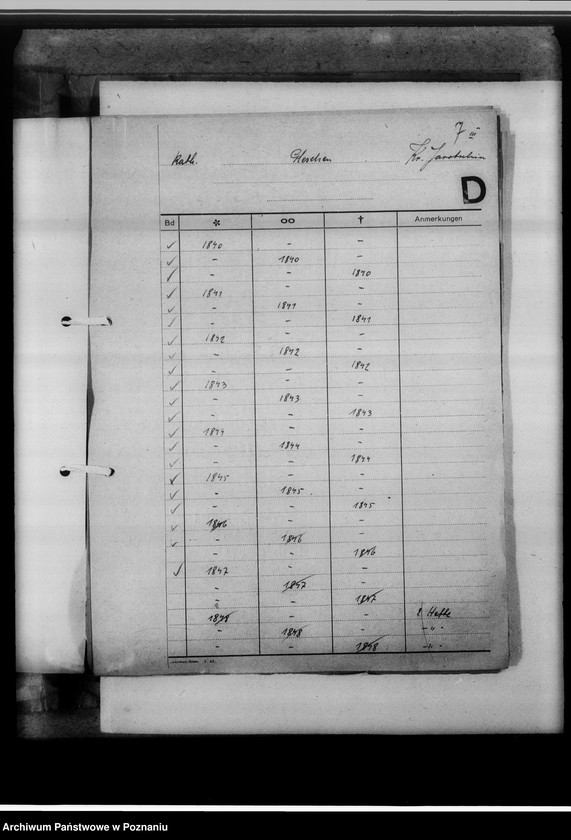 7 III
Kath. Pleschen Kr. Jarotschin
D
Bd * oo † Anmerkungen
✓ 1840 - -
✓ - 1840 -
✓ - - 1840
✓ 1841 - -
✓ - 1841 -
✓ - - 1841
✓ 1842 - -
✓ - 1842 -
✓ - - 1842
✓ 1843 - -
✓ - 1843 -
✓ - - 1843
✓ 1844 - -
✓ - 1844 -
✓ - - 1844
✓ 1845 - -
✓ - 1845 -
✓ - - 1845
✓ 1846 - -
✓ - 1846 -
- - 1846
✓ 1847 - -
- 1847 -
- - 1847
1848 - - Hefte
- 1848 - - " -
- - 1848 - " -
Archiwum Państwowe w Poznaniu